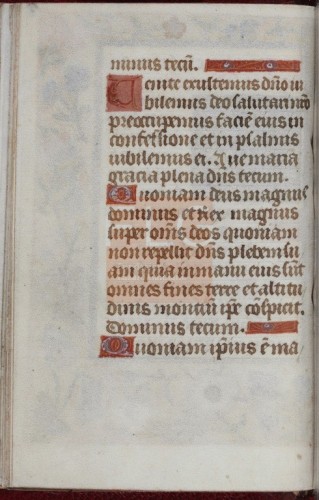 minus tecū.
Uenite exultemus dn̄o iu
bilemus deo salutari nr̄o
preoccupemus faciē eius in
confessione et in psalmis
iubilemus ei. Aue maria
gracia plena dn̄s tecum.
Quoniam deus magnus
dominus et rex magnus
super om̄s deos quoniam
non repellit dn̄s plebem su
am quia in manu eius sūt
omnes fines terre et altitu
dines montiū ip̄e cōspicit.
Dominus tecum.
Quoniam ip̄ius ē ma